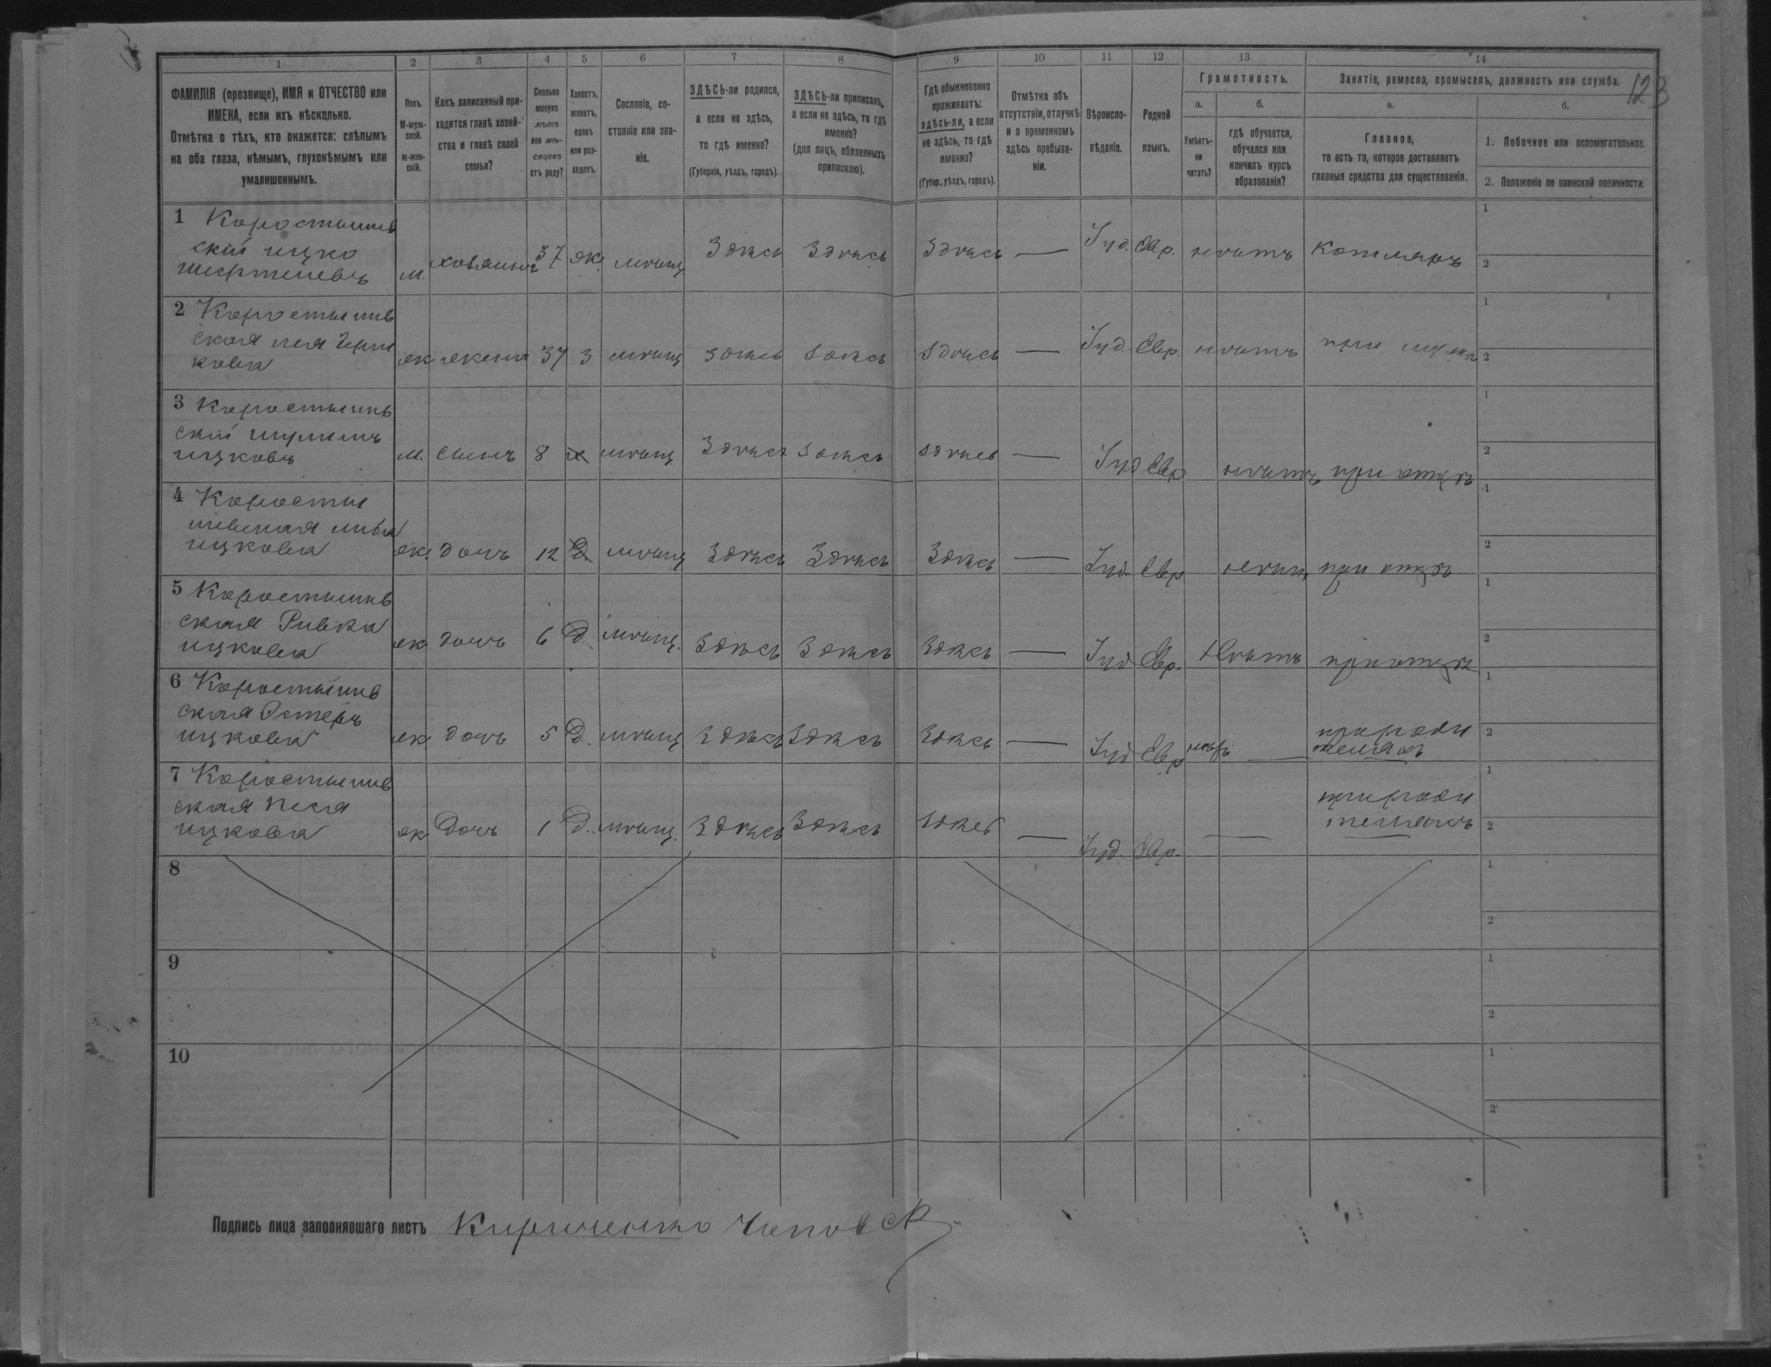 123
1 2 3 4 5 6 7 8 9 10 11 12 13 14
ФАМИЛІЯ (прозвище), ИМЯ и ОТЧЕСТВО или
ИМЕНА, если ихъ нѣсколько.
Отмѣтка о тѣхъ, кто окажется: слѣпымъ
на оба глаза, нѣмымъ, глухонѣмымъ или
умалишеннымъ.
Полъ.
М-муж-
ской.
ж-жен-
скій.
Какъ записанный при-
ходится главѣ хозяй-
ства и главѣ своей
семьи?
Сколько
минуло
лѣтъ
или мѣ-
сяцевъ
отъ роду?
Холостъ,
женатъ,
вдовъ
или раз-
веденъ.
Сословіе, со-
стояніе или зва-
ніе.
ЗДѢСЬ-ли родился,
а если не здѣсь,
то гдѣ именно?
(Губернія, уѣздъ, городъ).
ЗДѢСЬ-ли приписанъ,
а если не здѣсь, то гдѣ
именно?
(для лицъ, обязанныхъ
припискою).
Гдѣ обыкновенно
проживаетъ:
здѣсь-ли, а если
не здѣсь, то гдѣ
именно?
(Губер., уѣздъ, городъ).
Отмѣтка объ
отсутствіи, отлучкѣ
и о временномъ
здѣсь пребыва-
ніи.
Вѣроиспо-
вѣданіе.
Родной
языкъ.
Грамотность.
а.
Умѣетъ-
ли
читать?
б.
гдѣ обучается,
обучался или
кончилъ курсъ
образованія?
Занятіе, ремесло, промыселъ, должность или служба.
а.
Главное,
то есть то, которое доставляетъ
главныя средства для существованія.
б.
1. Побочное или вспомогательное.
2. Положеніе по воинской повинности.
1 Коростышев
ский ицко
м. хозяинъ 37 ж. мѣщ Здѣсь Здѣсь Здѣсь — Іуд. Евр. нѣтъ
1
2
2 Коростышев
ская
ковна ж жена 37 З мѣщ здѣсь здѣсь здѣсь — Іуд. Евр. нѣтъ при мужѣ
1
2
3 Коростышев
ский
ицковъ м. сынъ 8 мѣщ Здѣсь здѣсь здѣсь — Іуд Евр нѣтъ при отцѣ
1
2
4 Коросты
шевская
ицковна ж. дочь 12 мѣщ Здѣсь Здѣсь Здѣсь — Іуд. Евр нѣтъ при отцѣ
1
2
5 Коростышев
ская Ривка
ицковна ж дочь 6 Д. мѣщ. Здѣсь Здѣсь Здѣсь — Іуд Евр. Нѣтъ при отцѣ
1
2
6 Коростышев
ская Эстеръ
ицковна ж дочь 5 Д. мѣщ Здѣсь Здѣсь Здѣсь — Іуд Евр нѣтъ — при роди
теляхъ
1
2
7 Коростышев
ская Песя
ицковна ж Дочь 1 Д. мѣщ. Здѣсь Здѣсь Здѣсь — Іуд. Евр. — при роди
теляхъ
1
2
8
1
2
9
1
2
10
1
2
Подпись лица заполнявшаго листъ Кириченко